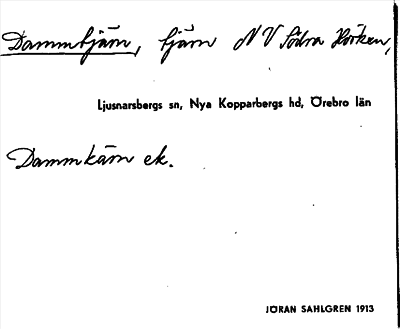 Dammtjärn, tjärn NV Södra Hörken,
Ljusnarsbergs sn, Nya Kopparbergs hd, Örebro län
Dammkärn ek.
JÖRAN SAHLGREN 1913